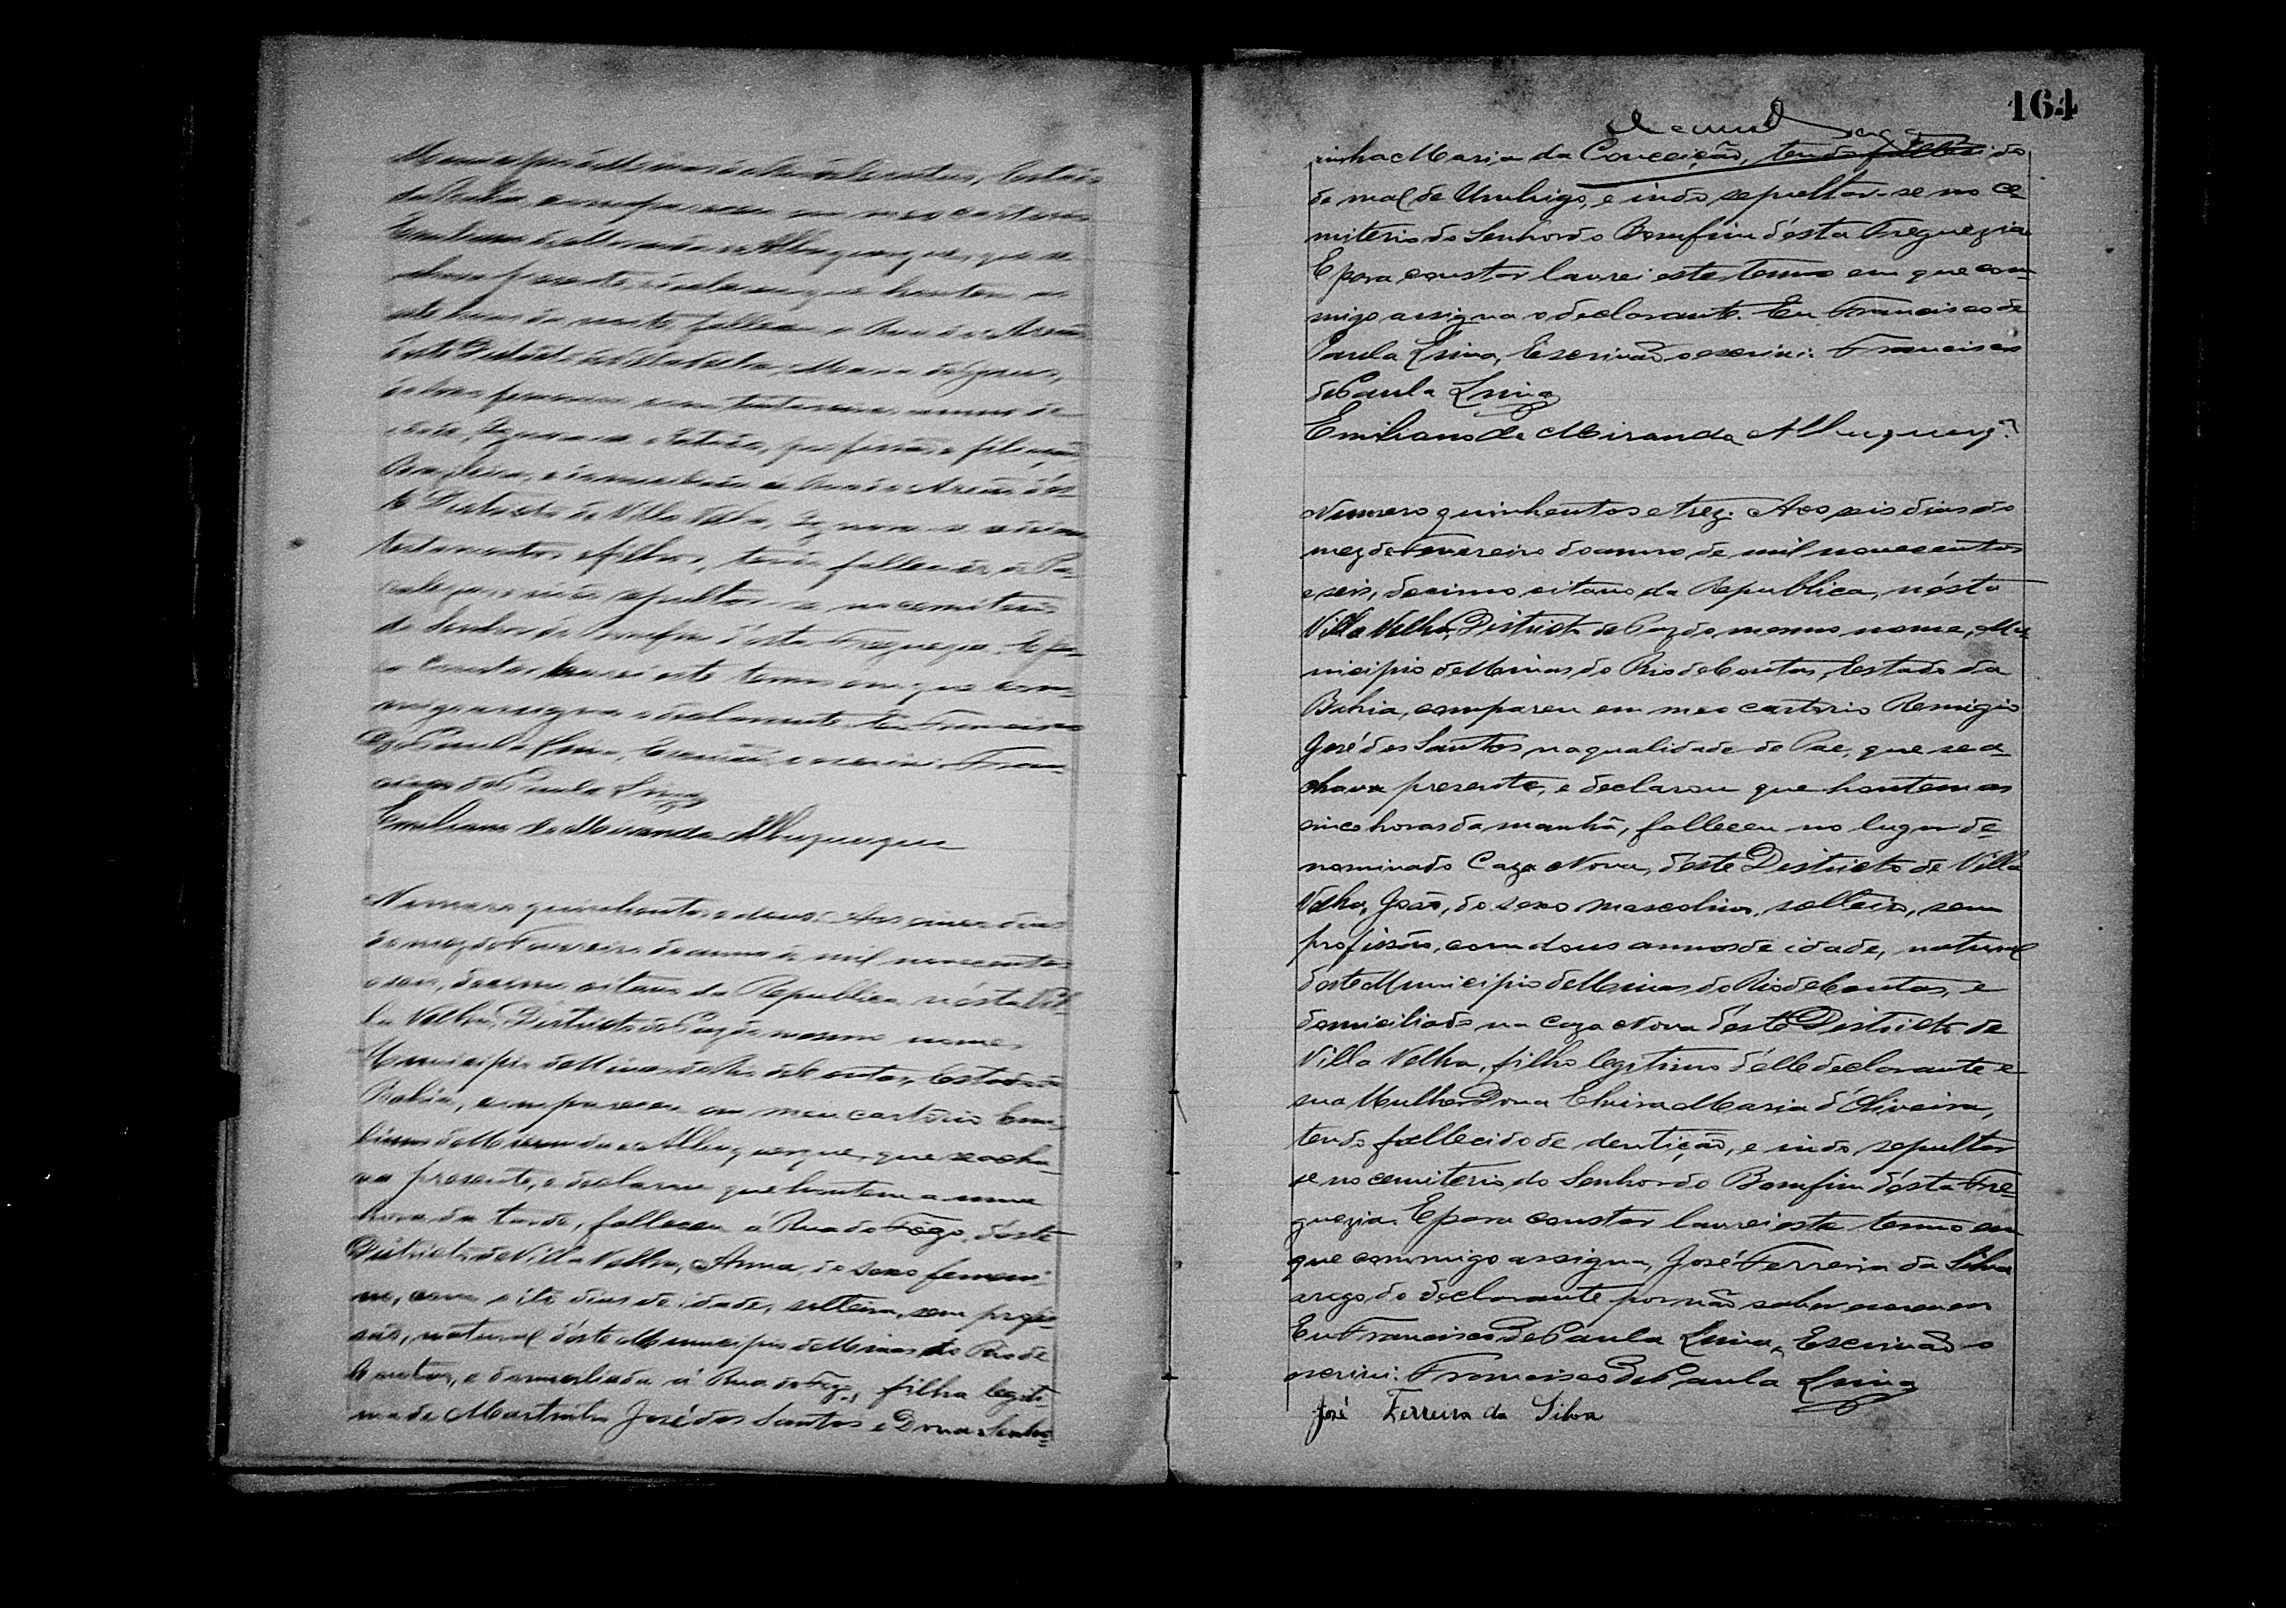 Municipio de Minas do Rio de Contas, Estado
da Bahia, compareceu em meu cartorio
Emiliano de Miranda e Albuquerque, que se
achava presente, e declarou que hontem as
horas da noite, falleceu a Rua da Areia
d'este Districto de Villa Velha, Maria de Jesus,
do sexo femenino, com annos de
idade, Ignora-se o Estado, profissão e filiação,
Brazileira, e domiciliada á Rua da Areia d'es-
te Districto de Villa Velha, Ignora-se
testamento e filhos, tendo fallecido de
e indo sepultar-se no cemiterio
do Senhor do Bomfim d'esta Freguezia. E pa-
ra constar lavrei este termo em que com-
migo assigna o declarante. Eu Francisco
de Paula Lima, Escrivão o escrevi. Fran-
cisco de Paula Lima
Emiliano de Miranda Albuquerque
Numero quinhentos e dous. Aos cinco dias
do mez de Fevereiro do anno de mil novecentos
e seis, decimo oitavo da Republica, n'esta Vil-
la Velha, Districto de Paz do mesmo nome,
Municipio de Minas do Rio de Contas, Estado da
Bahia, compareceu em meu cartorio Emi-
liano de Miranda e Albuquerque, que se acha-
va presente, e declarou que hontem a uma
hora da tarde, falleceu á Rua do Fogo, d'este
Districto de Villa Velha, Anna, do sexo femeni-
no, com oito dias de idade, solteira, sem profis-
são, natural d'este Municipio de Minas do Rio de
Contas, e domiciliada á Rua do Fogo, filha legiti-
ma de Martinho José dos Santos e Dona Senho-
164
rinha Maria da Conceição, tendo fallecido
de mal de Umbigo, e indo sepultar-se no ce-
miterio do Senhor do Bomfim d'esta Freguezia
E para constar lavrei este termo em que com-
migo assigna o declarante. Eu Francisco de
Paula Lima, Escrivão o escrivi: Francisco
de Paula Lima
Emiliano de Miranda Albuquerqe
Numero quinhentos e trez. Aos seis dias do
mez de Fevereiro do anno de mil novecentos
e seis, decimo oitavo da Republica, n'esta
Villa Velha, Districto de Paz do mesmo nome, Mu-
nicipio de Minas do Rio de Contas, Estado da
Bahia, compareu em meo cartorio Remigio
José dos Santos na qualidade de Pae, que se a
chava presente, e declarou que hontem as
cinco horas da manhã, falleceu no lugar de-
nominado Caza Nova, d'este Districto de Villa
Velha, João, do sexo masculino, solteiro, sem
profissão, com dous annos de idade, natural
d'este Municipio de Minas do Rio de Contas, e
domiciliado na Caza Nova d'este Districto de
Villa Velha, filho legitimo d'elle declarante e
sua Mulher Dona Elvira Maria d'Oliveira,
tendo fallecido de dentição, e indo sepultar
se no cemiterio do Senhor do Bomfim d'esta Fre-
guezia. E para constar lavrei este termo em
que commigo assigna, José Ferreira da Silva
a rogo do declarante por não saber escrever
Eu Francisco de Paula Lima, Escrivão o
escrivi: Francisco de Paula Lima
José Ferreira da Silva